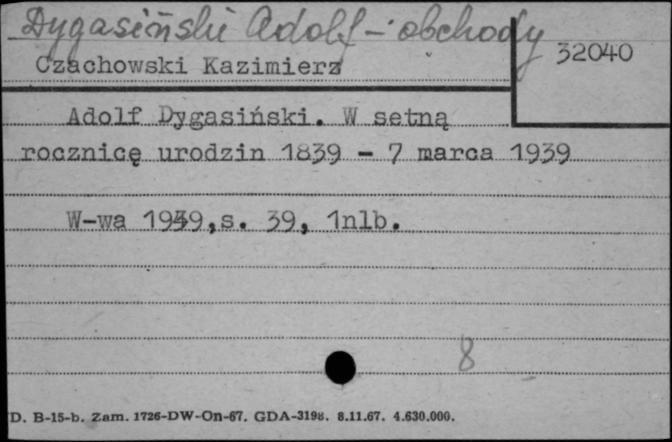 Dygasiński Adolf - obchody
32040
Czachowski Kazimierz
Adolf Dygasiński. W setną
rocznicę urodzin 1839 - 7 marca 1939
W-wa 1939, s. 39, 1nlb.
8
D. B-15-b. Zam. 1726-DW-On-67. GDA-3198. 8.11.67. 4.630.000.